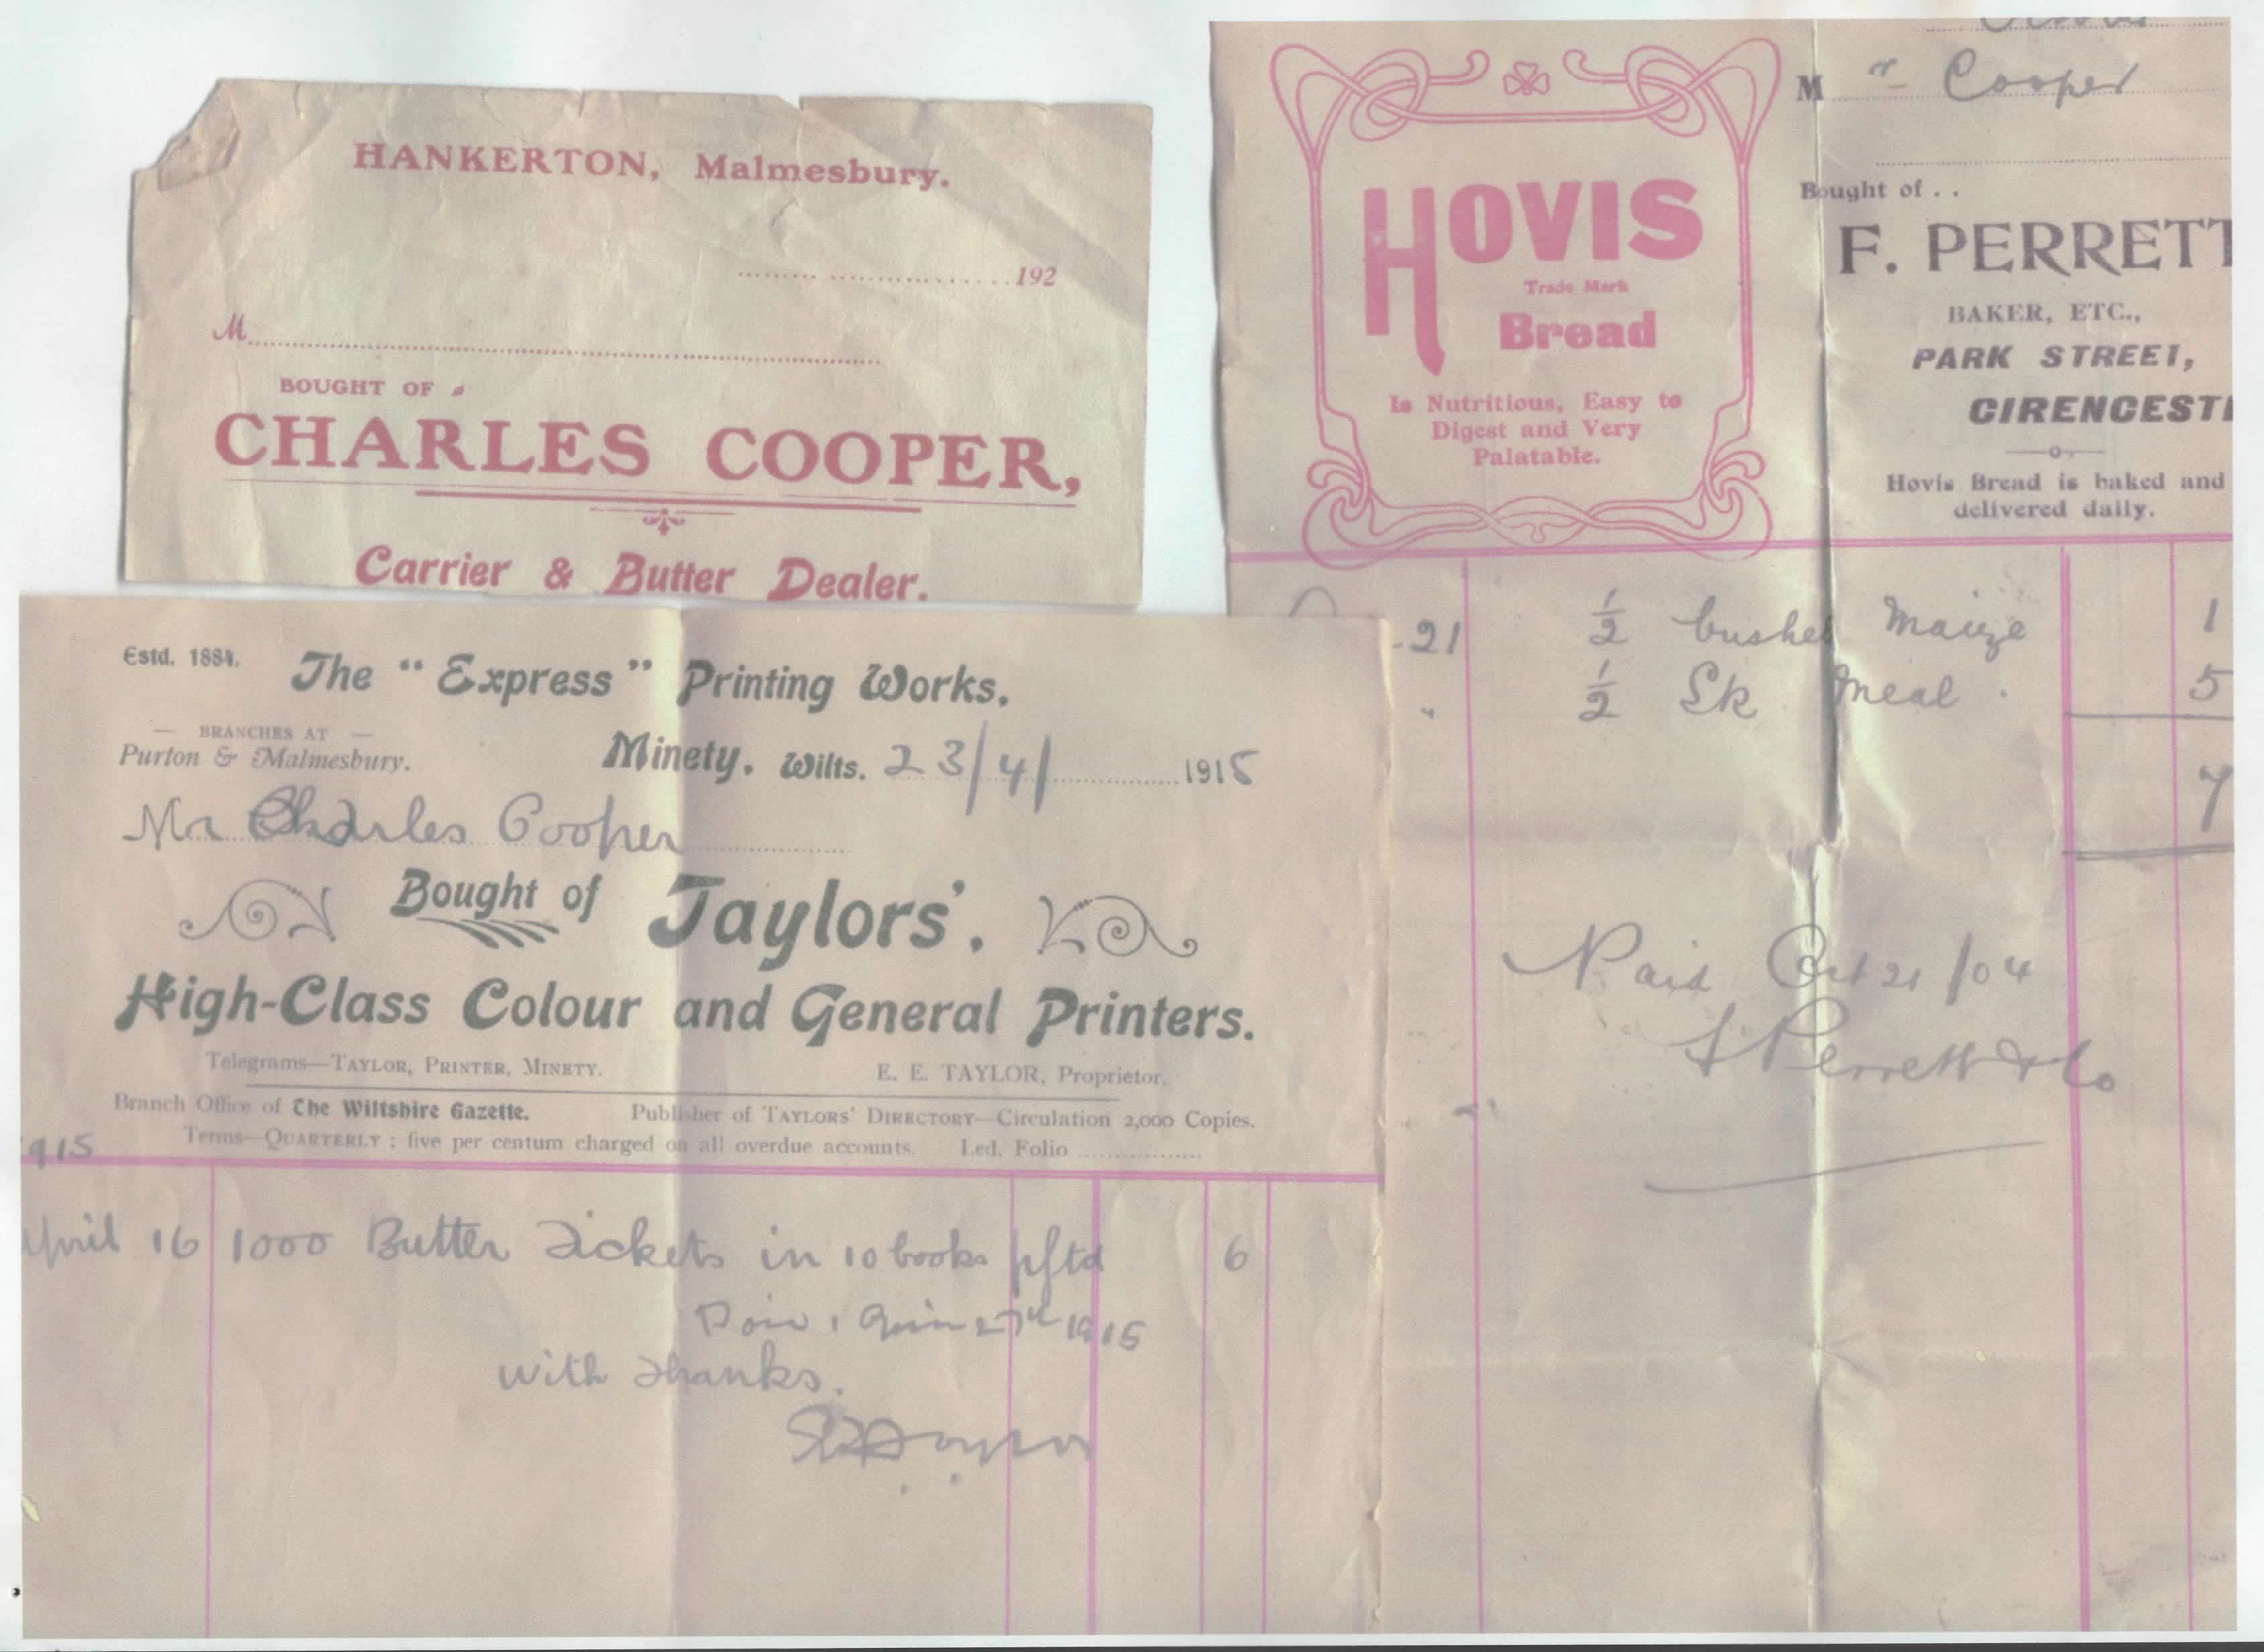 HANKERTON, Malmesbury.
192
M
BOUGHT OF
CHARLES COOPER,
Carrier & Butter Dealer.
M r Cooper
Bought of . .
F. PERRETT
BAKER, ETC.,
PARK STREET,
CIRENCESTE
Hovis Bread is baked and
delivered daily.
HOVIS
Trade Mark
Bread
Is Nutritious, Easy to
Digest and Very
Palatable.
21 1/2 bushel Maize 1
" 1/2 Sk Meal 5
7
Paid Oct 21/04
F Perrett & Co
Estd. 1884. The "Express" Printing Works,
— BRANCHES AT —
Purton & Malmesbury.
Minety, Wilts. 23/4/ 1915
Mr Charles Cooper
Bought of Taylors'.
High-Class Colour and General Printers.
Telegrams—TAYLOR, PRINTER, MINETY. E. E. TAYLOR, Proprietor.
Branch Office of The Wiltshire Gazette. Publisher of TAYLORS' DIRECTORY—Circulation 2,000 Copies.
Terms—QUARTERLY; five per centum charged on all overdue accounts. Led. Folio
1915
April 16 1000 Butter Tickets in 10 books pftd 6
27th 1915
With Thanks.